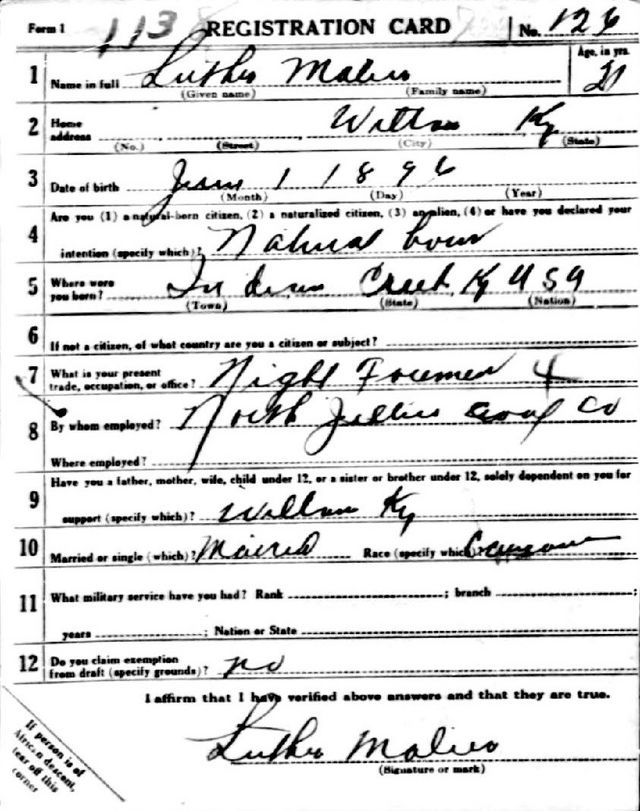 Form 1 113 REGISTRATION CARD No. 126
1 Name in full Luther (Given name) (Family name) Age, in yrs. 21
2 Home address (No.) (Street) (City) Ky (State)
3 Date of birth (Month) 1 (Day) 1896 (Year)
Are you (1) a natural-born citizen, (2) a naturalized citizen, (3) an alien, (4) or have you declared your
4 intention (specify which)? Natural born
5 Where were you born? (Town) Creek Ky (State) USA (Nation)
6 If not a citizen, of what country are you a citizen or subject?
7 What is your present trade, occupation, or office? Night Foreman 4
8 By whom employed? North Coal Co
Where employed?
Have you a father, mother, wife, child under 12, or a sister or brother under 12, solely dependent on you for
9 support (specify which)? Ky
10 Married or single (which)? Race (specify which)?
11 What military service have you had? Rank ; branch ;
years ; Nation or State
12 Do you claim exemption from draft (specify grounds)? no
I affirm that I have verified above answers and that they are true.
Luther
(Signature or mark)
If person is of
African descent,
tear off this
corner